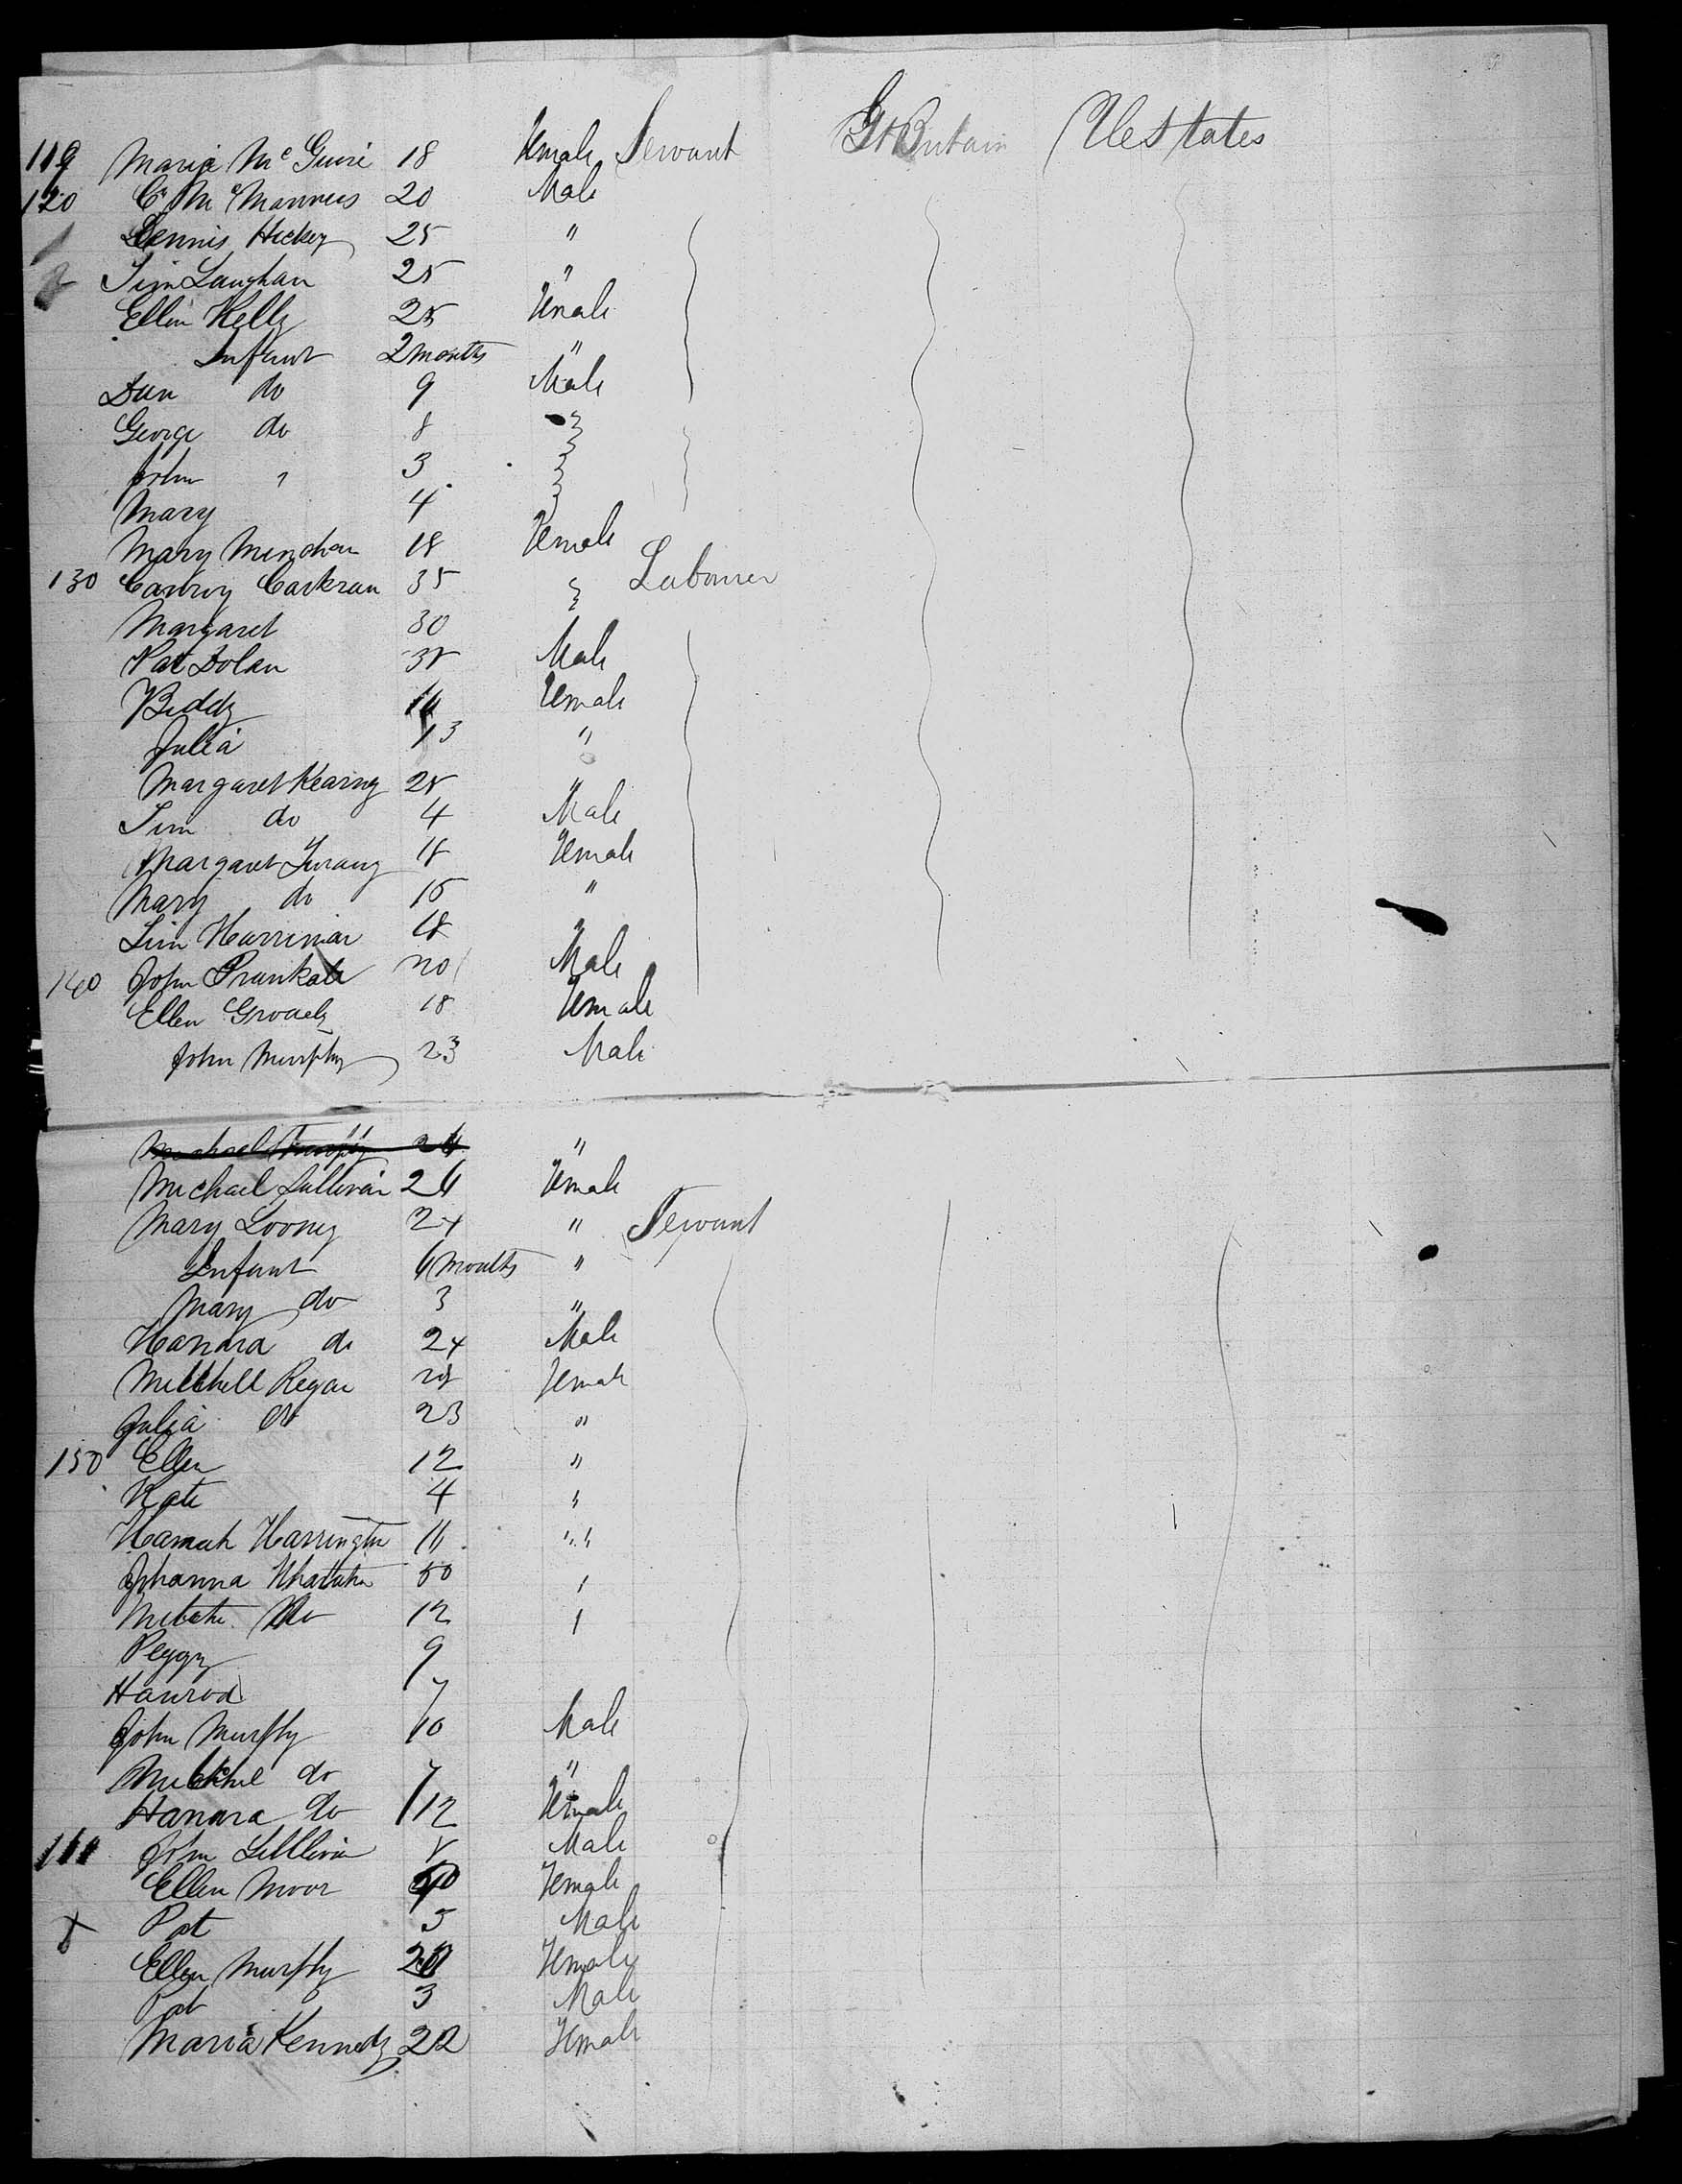 119 Maria McGuire 18 Female Servant Gt Britain U States
120 C. McMannus 20 Male
1 Dennis Hickey 25 "
2 Tim Laughan 25 "
Ellin Kelly 25 Female
Infant 2 months "
Dan do 9 Male
George do 8
John " 3
Mary 4
Mary 18 Female
130 Conroy Corkran 35 Labourer
Margaret 30
Pat Dolan 35 Male
Biddy Female
Julia 13 "
Margaret Kearny 25 "
Tim do 4 Male
Margaret 18 Female
Mary do 16 "
Harrinian 18 "
140 John 20 Male
Ellen 18 Female
John Murphy 23 Male
Michael Murphy 24 "
Michael Sullivan 24 Female
Mary Loony 24 " Servant
Infant 6 months "
Mary do 3 "
Hanara do 24 Male
Mitchell Regan Female
Julia do 23 "
150 Ellen 12 "
Kate 4 "
Hannah Harrington 11 "
Johanna 50 "
do 12 "
Peggy 9
7
John Murphy 10 Male
Michael do 7 "
Hanara do 12 Female
John Sullivan Male
Ellen Moor Female
x Pat 5 Male
Ellen Murphy Female
Pat 3 Male
Maria Kennedy 22 Female